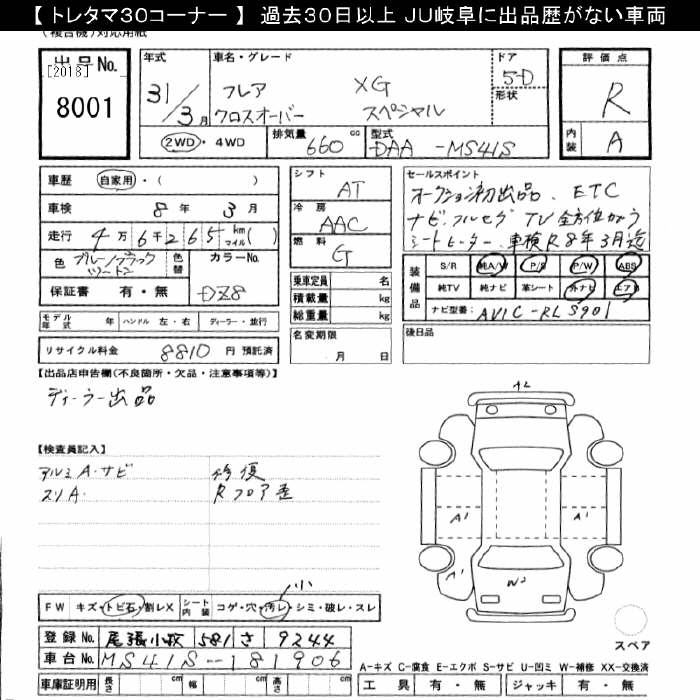 【 トレタマ30コーナー 】 過去30日以上 JU岐阜に出品歴がない車両
(複合機)対応用紙
出品No.
[2018]
8001
年式
31/3月
車名・グレード
フレア XG
クロスオーバー スペシャル
ドア
5-D
形状
評価点
R
内装 A
2WD・4WD
排気量 660 cc
型式 DAA-MS41S
車歴 自家用・( )
車検 8年 3月
走行 4万6千265 km マイル( )
色 ブルー/ブラック ツートン
色替
カラーNo.
DZ8
保証書 有・無
モデル年式 年 ハンドル 左・右 ディーラー・並行
リサイクル料金 8810 円 預託済
シフト AT
冷房 AAC
燃料 G
乗車定員 名
積載量 kg
総重量 kg
名変期限
月 日
セールスポイント
オークション初出品、ETC
ナビ、フルセグTV 全方位カメラ
シートヒーター、車検R8年3月迄
装備品
S/R 純A/W P/S P/W ABS
純TV 純ナビ 革シート 外ナビ エアB
ナビ型番: AVIC-RLS901
後日品
【出品店申告欄(不良箇所・欠品・注意事項等)】
ディーラー出品
【検査員記入】
アルミA・サビ 修復
スリA. Rフロア歪
AL
A1
A1
A1
W2
小
FW キズ・トビ石・割レX シート内装 コゲ・穴・汚レ・シミ・破レ・スレ
スペア
登録No. 尾張小牧 581 さ 9244
車台No. MS41S-181906
A-キズ C-腐食 E-エクボ S-サビ U-凹ミ W-補修 XX-交換済
車庫証明用 長さ cm 幅 cm 高さ cm
工具 有・無 ジャッキ 有・無